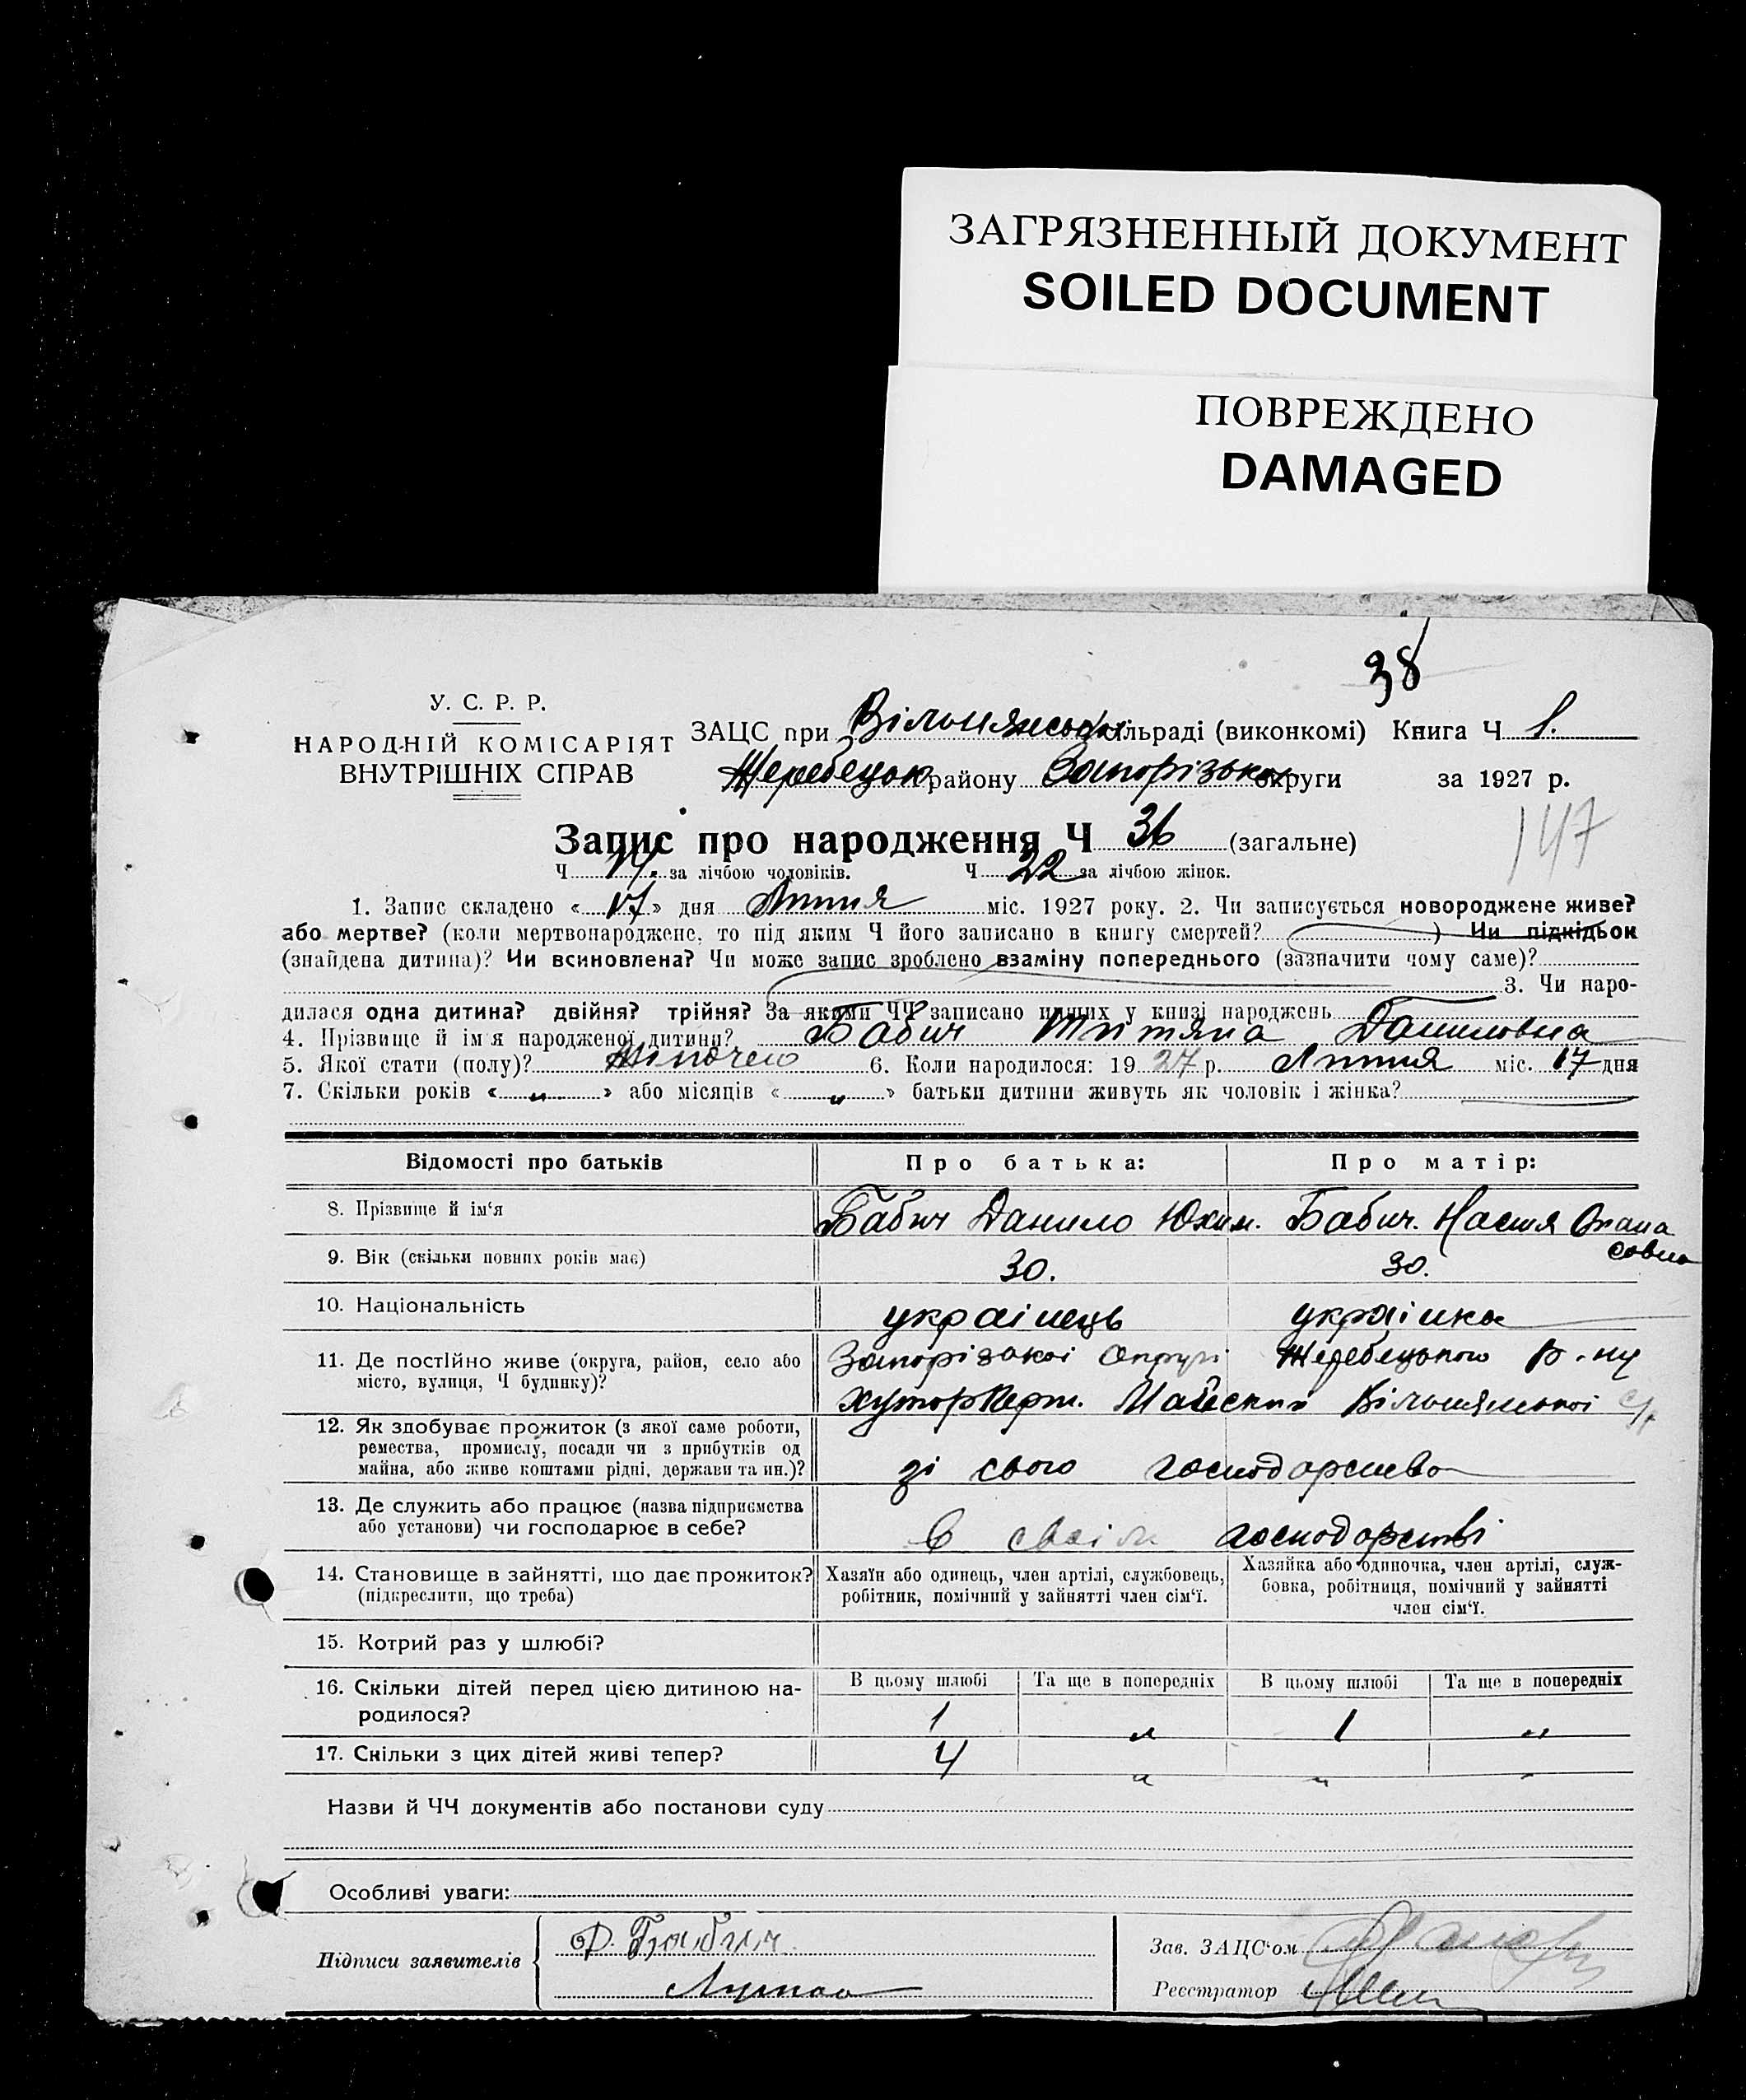 ЗАГРЯЗНЕННЫЙ ДОКУМЕНТ
SOILED DOCUMENT
ПОВРЕЖДЕНО
DAMAGED
38
У. С. Р. Р.
НАРОДНІЙ КОМІСАРІЯТ
ВНУТРІШНІХ СПРАВ
ЗАЦС при Вільнянськ сільраді (виконкомі) Книга Ч 1.
Жеребецьк району Запорізько округи за 1927 р.
147
Запис про народження Ч 36 (загальне)
Ч 14. за лічбою чоловіків. Ч 22 за лічбою жінок.
1. Запис складено « 17 » дня Липня міс. 1927 року. 2. Чи записується новороджене живе?
або мертве? (коли мертвонароджене, то під яким Ч його записано в книгу смертей? ) Чи підкідьок
(знайдена дитина)? Чи всиновлена? Чи може запис зроблено взаміну попереднього (зазначити чому саме)?
3. Чи наро-
дилася одна дитина? двійня? трійня? За якими ЧЧ записано инших у книзі народжень
4. Прізвище й ім'я народженої дитини? Бабич Титяна Даниловна
5. Якої стати (полу)? Жіночею 6. Коли народилося: 1927 р. Липня міс. 17 дня
7. Скільки років « „ » або місяців « „ » батьки дитини живуть як чоловік і жінка?
Відомості про батьків Про батька: Про матір:
8. Прізвище й ім'я Бабич Данило Юхим. Бабич. Настя Опана
совна
9. Вік (скільки повних років має) 30. 30.
10. Національність українець українка
11. Де постійно живе (округа, район, село або Запорізької Округи Жеребецького Р-ну
місто, вулиця, Ч будинку)? хутор Майский Вільнянської с/р
12. Як здобуває прожиток (з якої саме роботи,
ремества, промислу, посади чи з прибутків од
майна, або живе коштами рідні, держави та ин.)? зі свого господарства
13. Де служить або працює (назва підприємства
або установи) чи господарює в себе? в своїм господарстві
14. Становище в зайнятті, що дає прожиток? Хазяїн або одинець, член артілі, службовець, Хазяйка або одиночка, член артілі, служ-
(підкреслити, що треба) робітник, помічний у зайнятті член сім'ї. бовка, робітниця, помічний у зайнятті
член сім'ї.
15. Котрий раз у шлюбі?
16. Скільки дітей перед цією дитиною на- В цьому шлюбі Та ще в попередніх В цьому шлюбі Та ще в попередніх
родилося? 1 „ 1 „
17. Скільки з цих дітей живі тепер? 4 „ „ „
Назви й ЧЧ документів або постанови суду
Особливі уваги:
Підписи заявителів Д. Бабич Зав. ЗАЦС'ом
Реєстратор